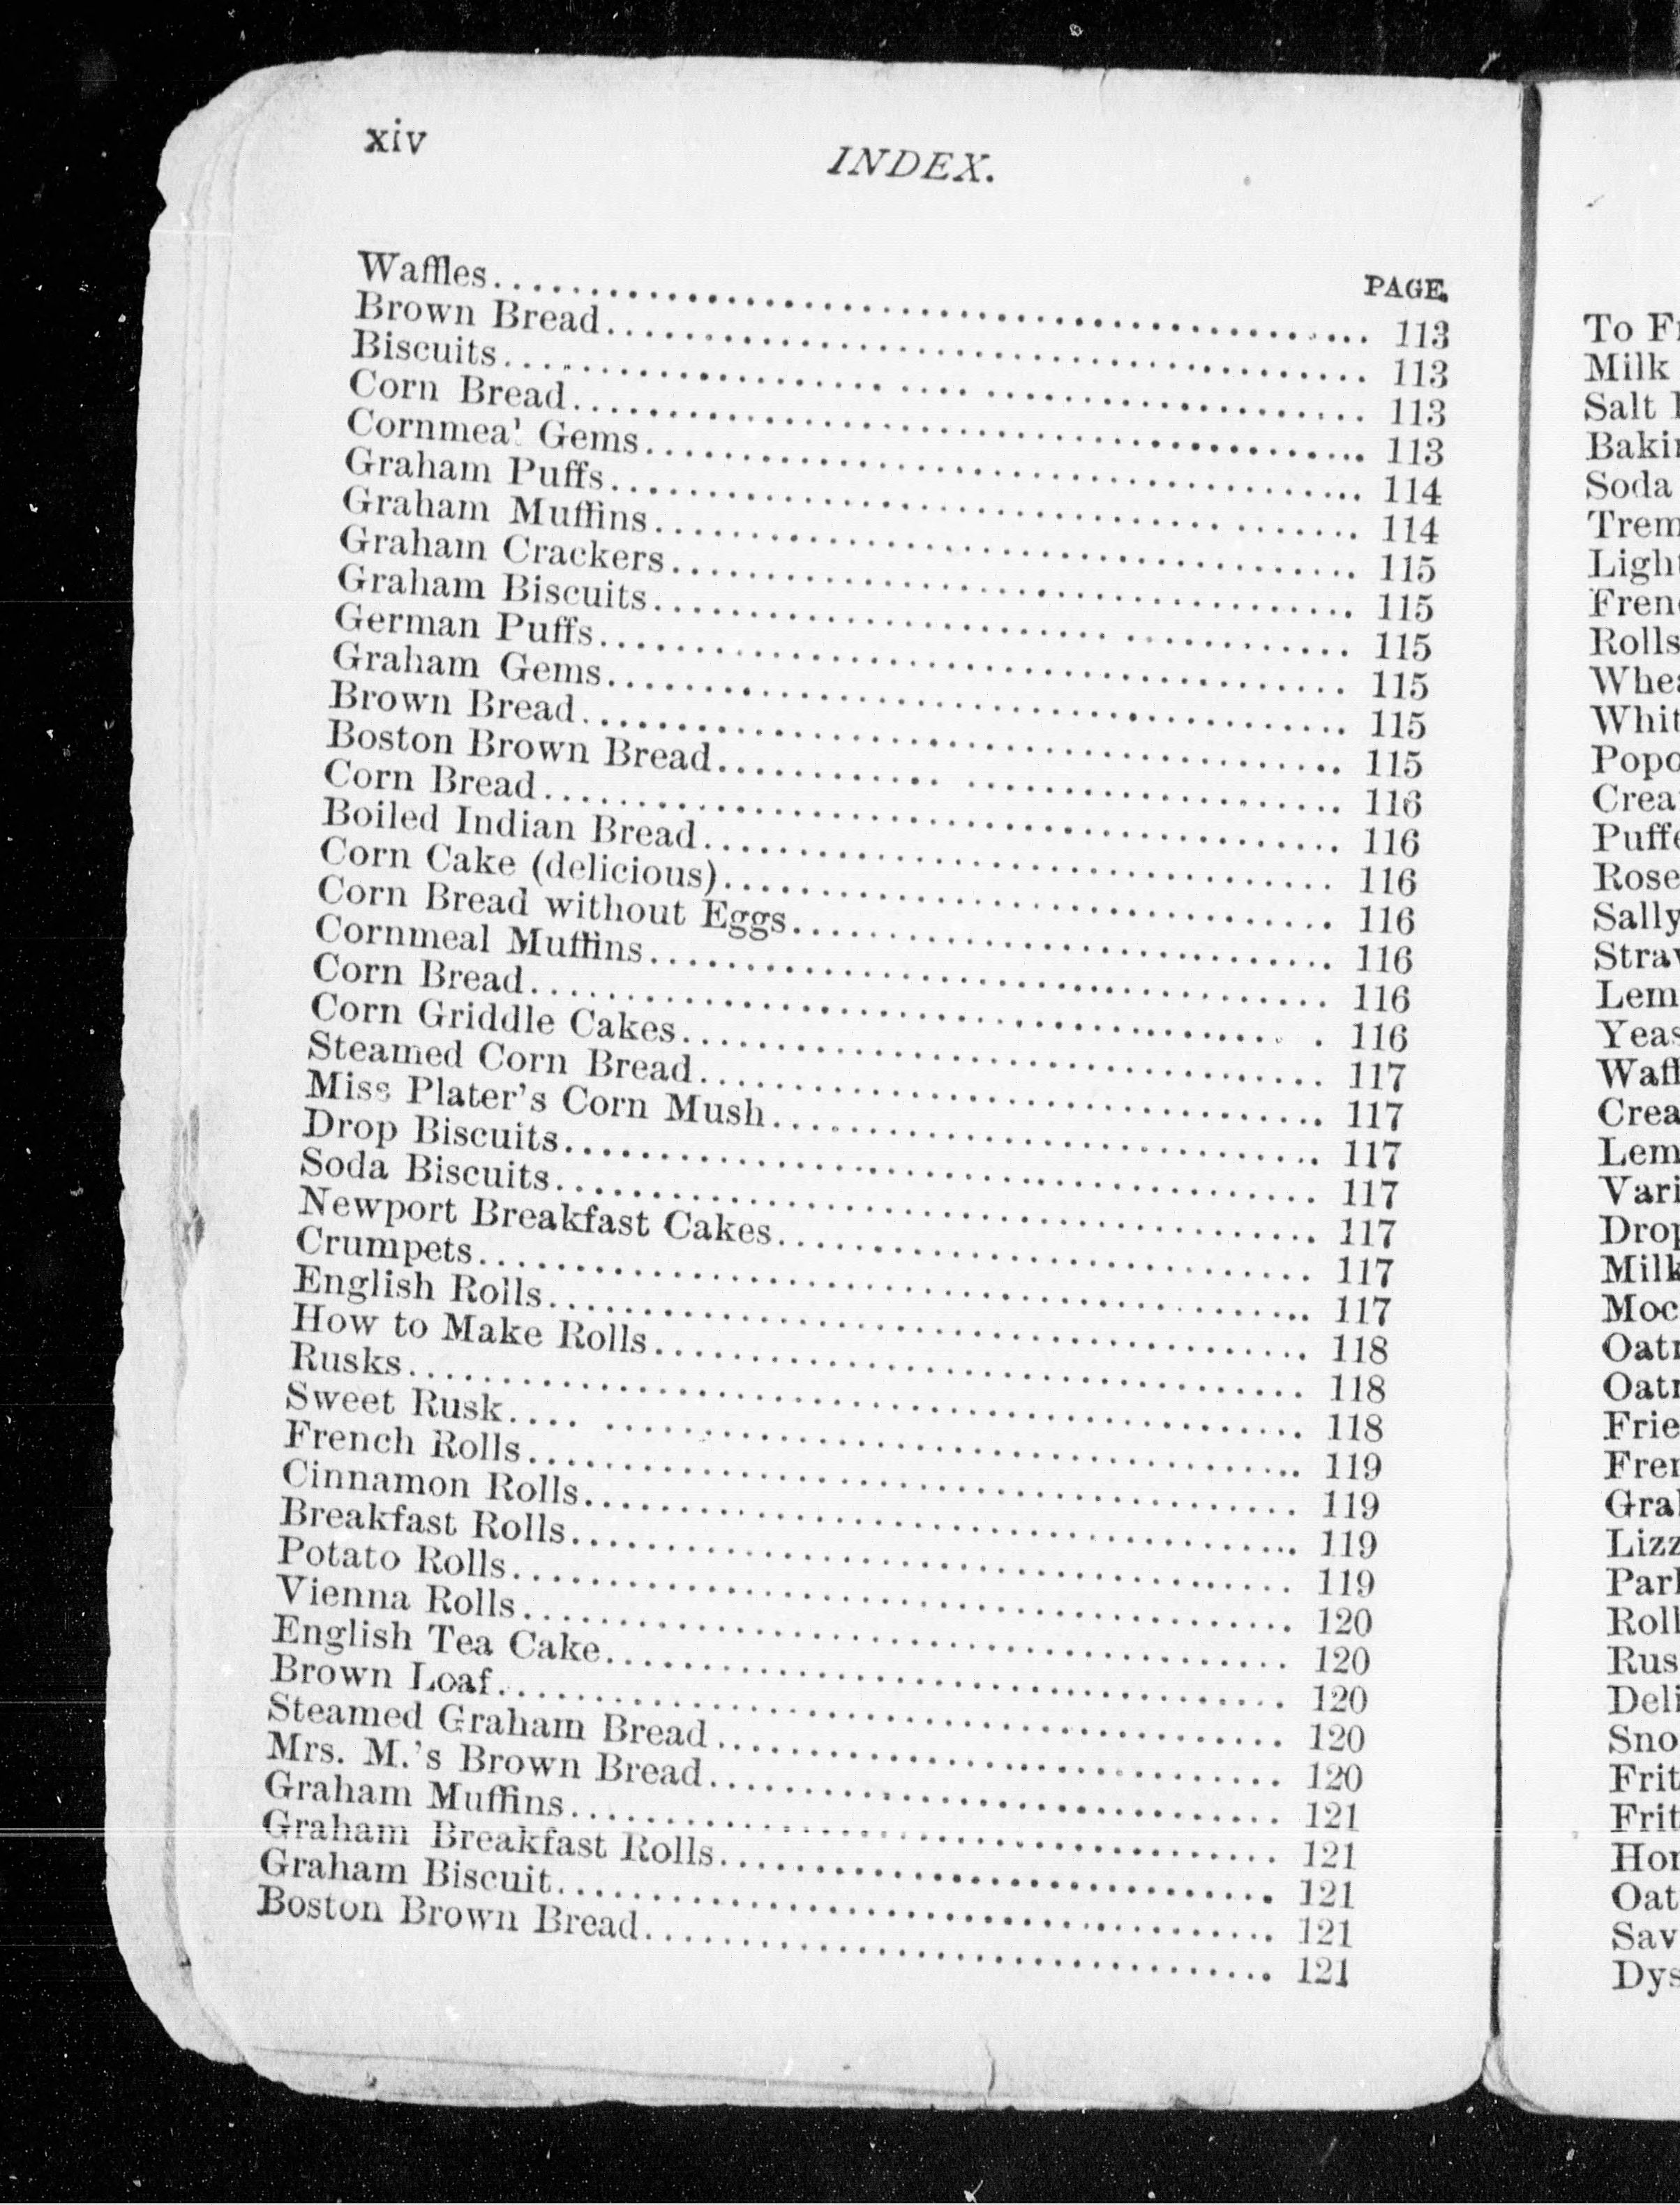 xiv
INDEX.
PAGE.
Waffles........ 113
Brown Bread........ 113
Biscuits........ 113
Corn Bread........ 113
Cornmeal Gems........ 114
Graham Puffs........ 114
Graham Muffins........ 115
Graham Crackers........ 115
Graham Biscuits........ 115
German Puffs........ 115
Graham Gems........ 115
Brown Bread........ 115
Boston Brown Bread........ 116
Corn Bread........ 116
Boiled Indian Bread........ 116
Corn Cake (delicious)........ 116
Corn Bread without Eggs........ 116
Cornmeal Muffins........ 116
Corn Bread........ 116
Corn Griddle Cakes........ 117
Steamed Corn Bread........ 117
Miss Plater's Corn Mush........ 117
Drop Biscuits........ 117
Soda Biscuits........ 117
Newport Breakfast Cakes........ 117
Crumpets........ 117
English Rolls........ 118
How to Make Rolls........ 118
Rusks........ 118
Sweet Rusk........ 119
French Rolls........ 119
Cinnamon Rolls........ 119
Breakfast Rolls........ 119
Potato Rolls........ 120
Vienna Rolls........ 120
English Tea Cake........ 120
Brown Loaf........ 120
Steamed Graham Bread........ 120
Mrs. M.'s Brown Bread........ 121
Graham Muffins........ 121
Graham Breakfast Rolls........ 121
Graham Biscuit........ 121
Boston Brown Bread........ 121
To
Milk
Salt
Soda
Rolls